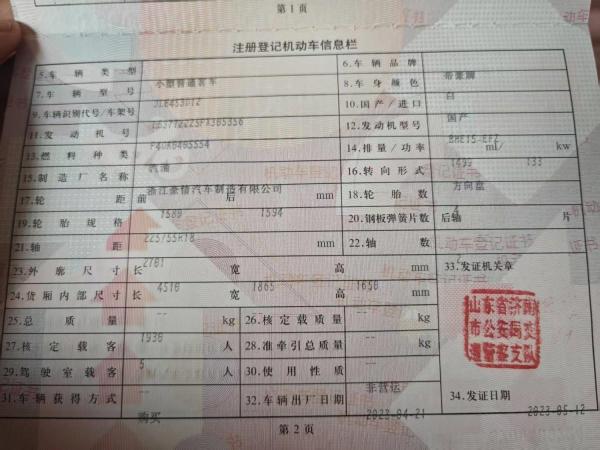 第1页
注册登记机动车信息栏
5.车辆类型 小型普通客车 6.车辆品牌 帝豪牌
7.车辆型号 JL6453D12 8.车身颜色 白
9.车辆识别代号/车架号 10.国产/进口 国产
11.发动机号 12.发动机型号 BHE15-EFZ
13.燃料种类 汽油 14.排量/功率 1499 ml/ 133 kw
15.制造厂名称 浙江豪情汽车制造有限公司 16.转向形式 方向盘
17.轮距 前 1589 后 1594 mm 18.轮胎数 4
19.轮胎规格 225/55R18 20.钢板弹簧片数 后轴 -- 片
21.轴距 2701 mm 22.轴数 2
23.外廓尺寸 长 4516 宽 1865 高 1650 mm 33.发证机关章
24.货厢内部尺寸 长 -- 宽 -- 高 -- mm
25.总质量 1936 kg 26.核定载质量 -- kg
27.核定载客 5 人 28.准牵引总质量 -- kg
29.驾驶室载客 -- 人 30.使用性质 非营运
31.车辆获得方式 购买 32.车辆出厂日期 2023-04-21 34.发证日期 2023-05-12
山东省济
市公安局交
通警察支队
第2页